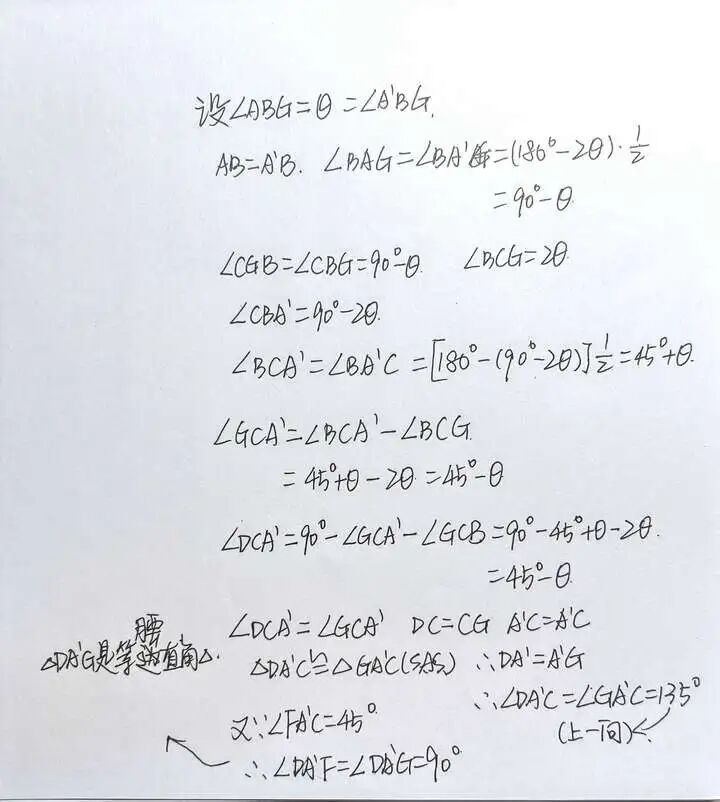 设∠ABG=θ=∠A'BG.
AB=A'B. ∠BAG=∠BA'G=(180°-2θ)·1/2
=90°-θ
∠CGB=∠CBG=90°-θ. ∠BCG=2θ.
∠CBA'=90°-2θ.
∠BCA'=∠BA'C=[180°-(90°-2θ)]1/2=45°+θ.
∠GCA'=∠BCA'-∠BCG.
=45°+θ-2θ=45°-θ
∠DCA'=90°-∠GCA'-∠GCB=90°-45°+θ-2θ.
=45°-θ.
∠DCA'=∠GCA' DC=CG A'C=A'C
△DA'C≌△GA'C(SAS) ∴DA'=A'G
∴∠DA'C=∠GA'C=135°
(上一问)
又∵∠FA'C=45°
∴∠DA'F=∠DA'G=90°
△DA'G是等腰直角△.